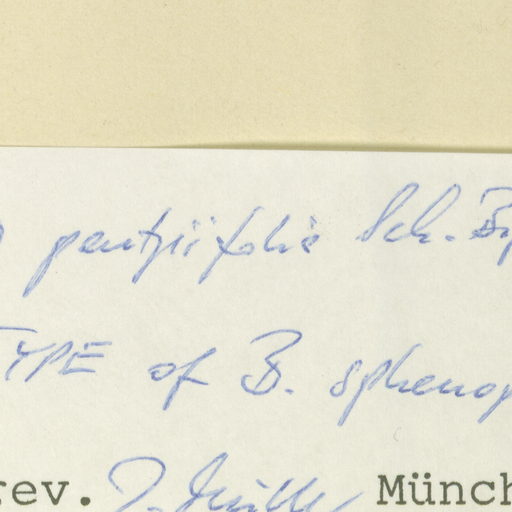 pentziifolia Sch. Bip
TYPE of B. sphenop
rev. J. Müller Münch